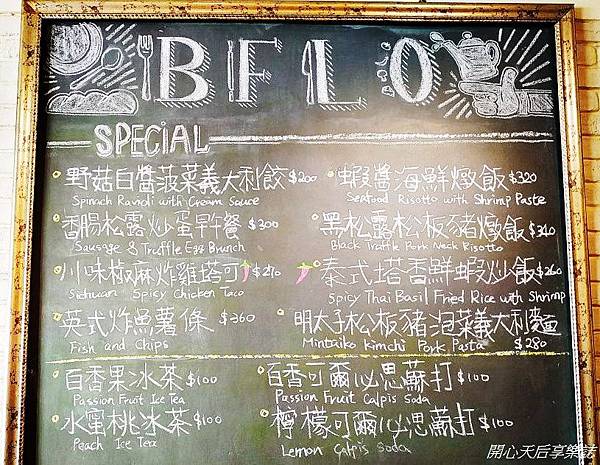 BFLO
SPECIAL
野菇白醬菠菜義大利餃 $200
Spinach Ravioli with Cream Sauce
香腸松露炒蛋早午餐 $300
Sausage & Truffle Egg Brunch
川味椒麻炸雞塔可 $270
Sichuan Spicy Chicken Taco
英式炸魚薯條 $360
Fish and Chips
蝦醬海鮮燉飯 $320
Seafood Risotto with Shrimp Paste
黑松露松板豬燉飯 $340
Black Truffle Pork Neck Risotto
泰式塔香鮮蝦炒飯 $260
Spicy Thai Basil Fried Rice with Shrimp
明太子松板豬泡菜義大利麵
Mintaiko Kimchi Pork Pasta $280
百香果冰茶 $100
Passion Fruit Ice Tea
水蜜桃冰茶 $100
Peach Ice Tea
百香可爾必思蘇打 $100
Passion Fruit Calpis Soda
檸檬可爾必思蘇打 $100
Lemon Calpis Soda
開心天后享樂誌